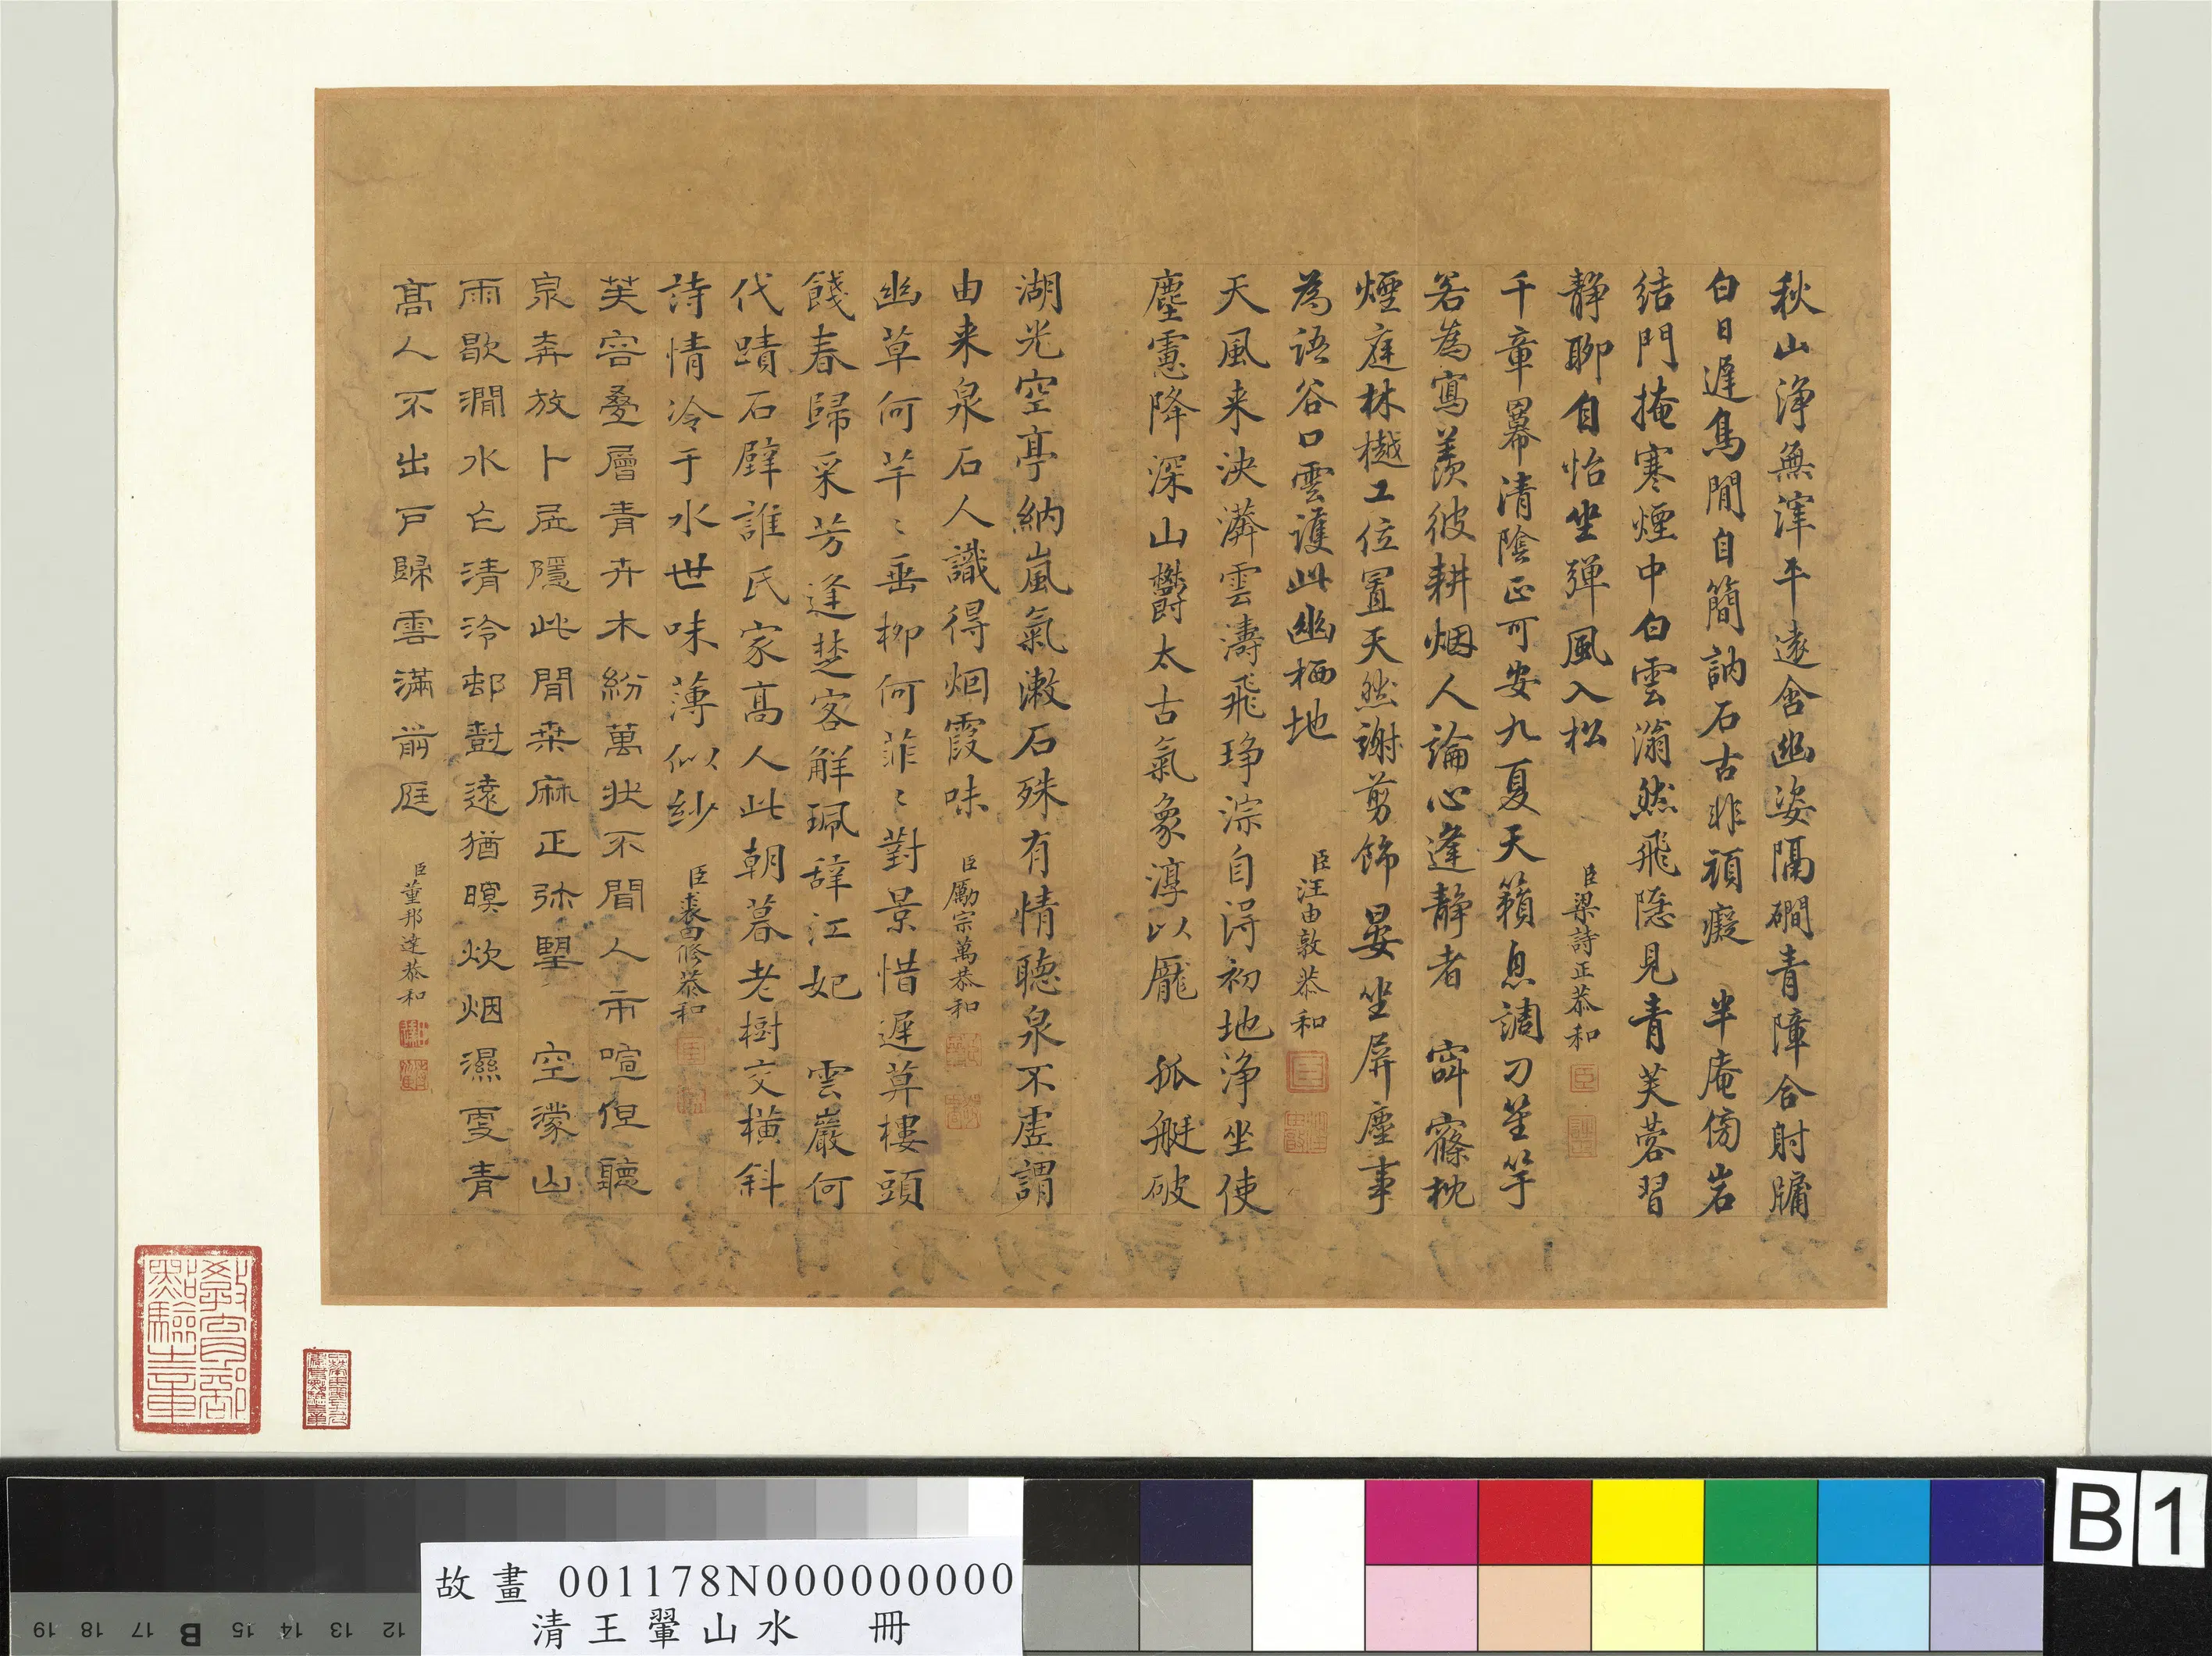 秋山淨無滓平遠含幽姿隔磵青障合射牖
白日遲鳥閒自簡訥石古非頑癡　半庵傍岩
結門掩寒煙中白雲滃然飛隱見青芙蓉習
靜聊自怡坐彈風入松　臣梁詩正恭和
千章羃清陰正可安九夏天籟息調刁笙竽
若為寫羨彼耕烟人論心逢靜者　窗寱篠枕
煙庭林樾工位置天然謝剪飾晏坐屏塵事
為語谷口雲護此幽栖地　臣汪由敦恭和
天風来泱漭雲濤飛琤淙自得初地淨坐使
塵慮降深山鬱太古氣象淳以厖　孤艇破
湖光空亭納嵐氣漱石殊有情聽泉不虛謂
由来泉石人識得烟霞味　臣勵宗萬恭和
幽草何芊〻垂柳何菲〻對景惜遲草樓頭
餞春歸采芳逢楚客解珮辞江妃　雲巖何
代蹟石壁誰氏家高人此朝暮老樹交橫斜
詩情冷于水世味薄似紗　臣裘曰修恭和
芙容叠層青卉木紛萬狀不聞人市喧但聽
泉奔放卜居隱此間桒麻正弥朢　空濛山
雨歇澗水亡清泠邨對遠猶暝炊烟濕更青
高人不出戶歸雲滿前庭　臣董邦達恭和
教育部
點驗之章
故畫 001178N000000000
清王翬山水　冊
B 1
19 18 17 B 15 14 13 12